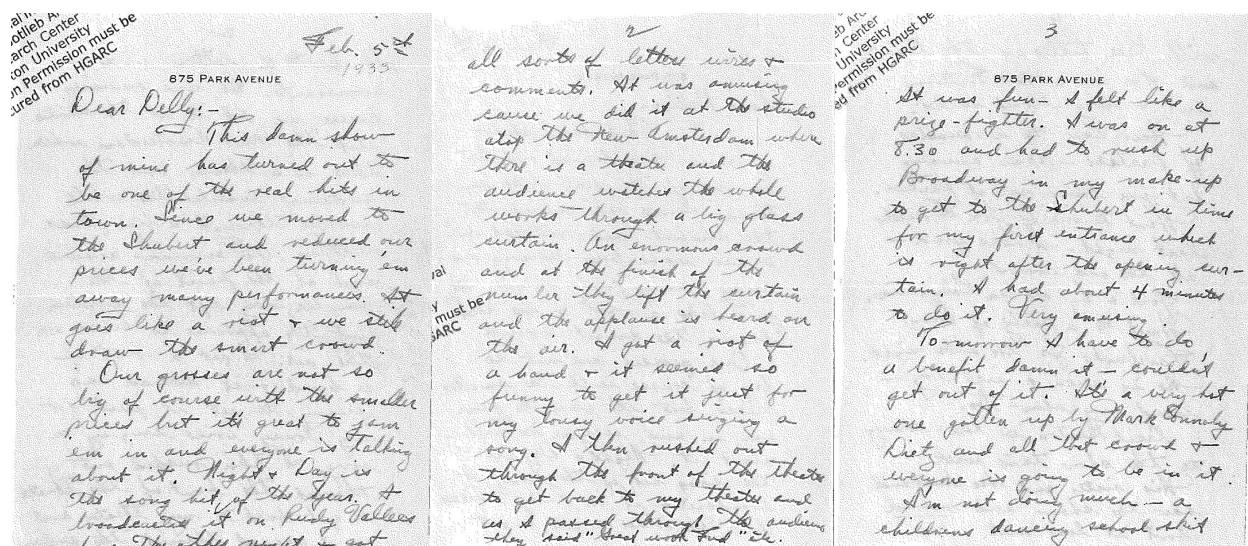 otlieb Ar
arch Center
ton University
n Permission must be
cured from HGARC
Feb. 5th
1933
875 PARK AVENUE
Dear Delly:-
This damn show
of mine has turned out to
be one of the real hits in
town. Since we moved to
the Shubert and reduced our
prices we've been turning 'em
away many performances. It
goes like a riot & we still
draw the smart crowd.
Our grosses are not so
big of course with the smaller
prices but it's great to jam
em in and everyone is talking
about it. Night & Day is
the song hit of the year. I
broadcasted it on Rudy Vallees
The other night & got
2
all sorts of letters wires &
comments. It was amusing
cause we did it at the studio
atop the New Amsterdam where
there is a theatre and the
audience watches the whole
works through a big glass
curtain. An enormous crowd
and at the finish of the
number they lift the curtain
and the applause is heard on
the air. I got a riot of
a hand & it seemed so
funny to get it just for
my lousy voice singing a
song. I then rushed out
through the front of the theatre
to get back to my theatre and
as I passed through the audience
they said "Great work Fred" etc.
val
y must be
GARC
eb Arc
h Center
University
Permission must be
ed from HGARC
3
875 PARK AVENUE
It was fun- I felt like a
prize-fighter. I was on at
8.30 and had to rush up
Broadway in my make-up
to get to the Shubert in time
for my first entrance which
is right after the opening cur-
tain. I had about 4 minutes
to do it. Very amusing.
To-morrow I have to do
a benefit damn it - couldn't
get out of it. It's a very hot
one gotten up by Mark Connoly
Dietz and all that crowd &
everyone is going to be in it.
I'm not doing much - a
childrens dancing school skit